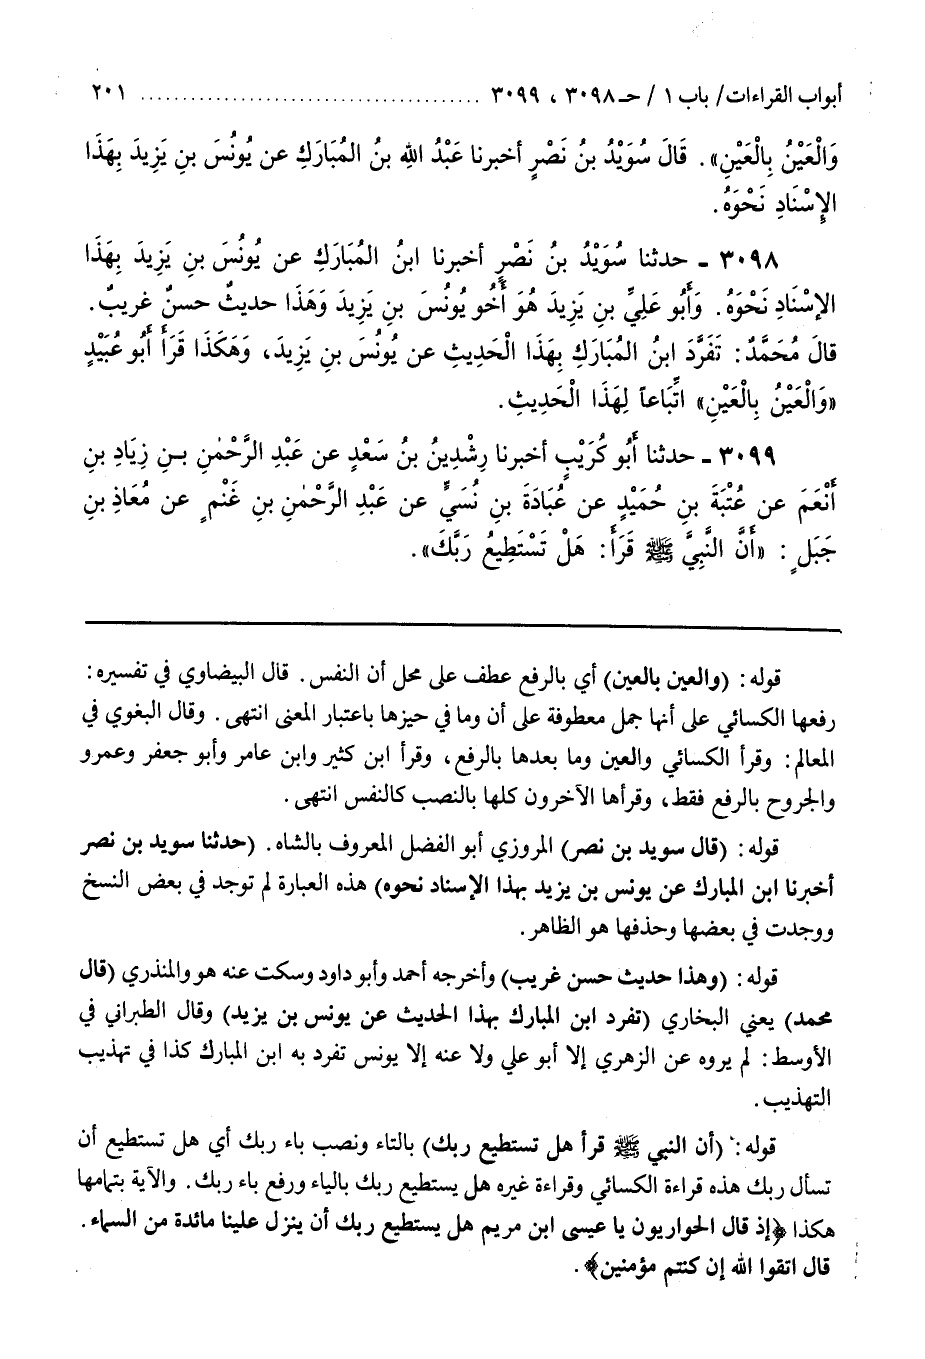 أبواب القراءات/ باب ١ / حـ ٣٠٩٨ ، ٣٠٩٩ ........................................ ٢٠١
وَالْعَيْنُ بِالْعَيْنِ». قَالَ سُوَيْدُ بنُ نَصْرٍ أخبرنا عَبْدُ اللهِ بنُ المُبَارَكِ عن يُونُسَ بنِ يَزِيدَ بِهَذَا
الإِسْنَادِ نَحْوَهُ.
٣٠٩٨ ـ حدثنا سُوَيْدُ بنُ نَصْرٍ أخبرنا ابنُ المُبَارَكِ عن يُونُسَ بنِ يَزِيدَ بِهَذَا
الإسْنَادِ نَحْوَهُ. وَأَبُو عَلِيِّ بنِ يَزِيدَ هُوَ أَخُو يُونُسَ بنِ يَزِيدَ وَهَذَا حديثٌ حسنٌ غريبٌ.
قالَ مُحَمَّدٌ: تَفَرَّدَ ابنُ المُبَارَكِ بِهَذَا الْحَدِيثِ عن يُونُسَ بنِ يَزِيدَ، وَهَكَذَا قَرَأَ أَبُو عُبَيْدٍ
«وَالْعَيْنُ بِالْعَيْنِ» اتِّبَاعاً لِهَذَا الْحَدِيثِ.
٣٠٩٩ ـ حدثنا أَبُو كُرَيْبٍ أخبرنا رِشْدِينُ بنُ سَعْدٍ عن عَبْدِ الرَّحْمٰنِ بـنِ زِيَادِ بنِ
أَنْعَمَ عن عُتْبَةَ بنِ حُمَيْدٍ عن عُبَادَةَ بنِ نُسَيٍّ عن عَبْدِ الرَّحْمٰنِ بنِ غَنْمٍ عن مُعَاذِ بنِ
جَبَلٍ: «أَنَّ النَّبِيَّ ﷺ قَرَأَ: هَلْ تَسْتَطِيعُ رَبَّكَ».
قوله: (والعين بالعين) أي بالرفع عطف على محل أن النفس. قال البيضاوي في تفسيره:
رفعها الكسائي على أنها جمل معطوفة على أن وما في حيزها باعتبار المعنى انتهى. وقال البغوي في
المعالم: وقرأ الكسائي والعين وما بعدها بالرفع، وقرأ ابن كثير وابن عامر وأبو جعفر وعمرو
والجروح بالرفع فقط، وقرأها الآخرون كلها بالنصب كالنفس انتهى.
قوله: (قال سويد بن نصر) المروزي أبو الفضل المعروف بالشاه. (حدثنا سويد بن نصر
أخبرنا ابن المبارك عن يونس بن يزيد بهذا الإسناد نحوه) هذه العبارة لم توجد في بعض النسخ
ووجدت في بعضها وحذفها هو الظاهر.
قوله: (وهذا حديث حسن غريب) وأخرجه أحمد وأبو داود وسكت عنه هو والمنذري (قال
محمد) يعني البخاري (تفرد ابن المبارك بهذا الحديث عن يونس بن يزيد) وقال الطبراني في
الأوسط: لم يروه عن الزهري إلا أبو علي ولا عنه إلا يونس تفرد به ابن المبارك كذا في تهذيب
التهذيب.
قوله: (أن النبي ﷺ قرأ هل تستطيع ربك) بالتاء ونصب باء ربك أي هل تستطيع أن
تسأل ربك هذه قراءة الكسائي وقراءة غيره هل يستطيع ربك بالياء ورفع باء ربك. والآية بتمامها
هكذا ﴿إذ قال الحواريون يا عيسى ابن مريم هل يستطيع ربك أن ينزل علينا مائدة من السماء.
قال اتقوا الله إن كنتم مؤمنين﴾.